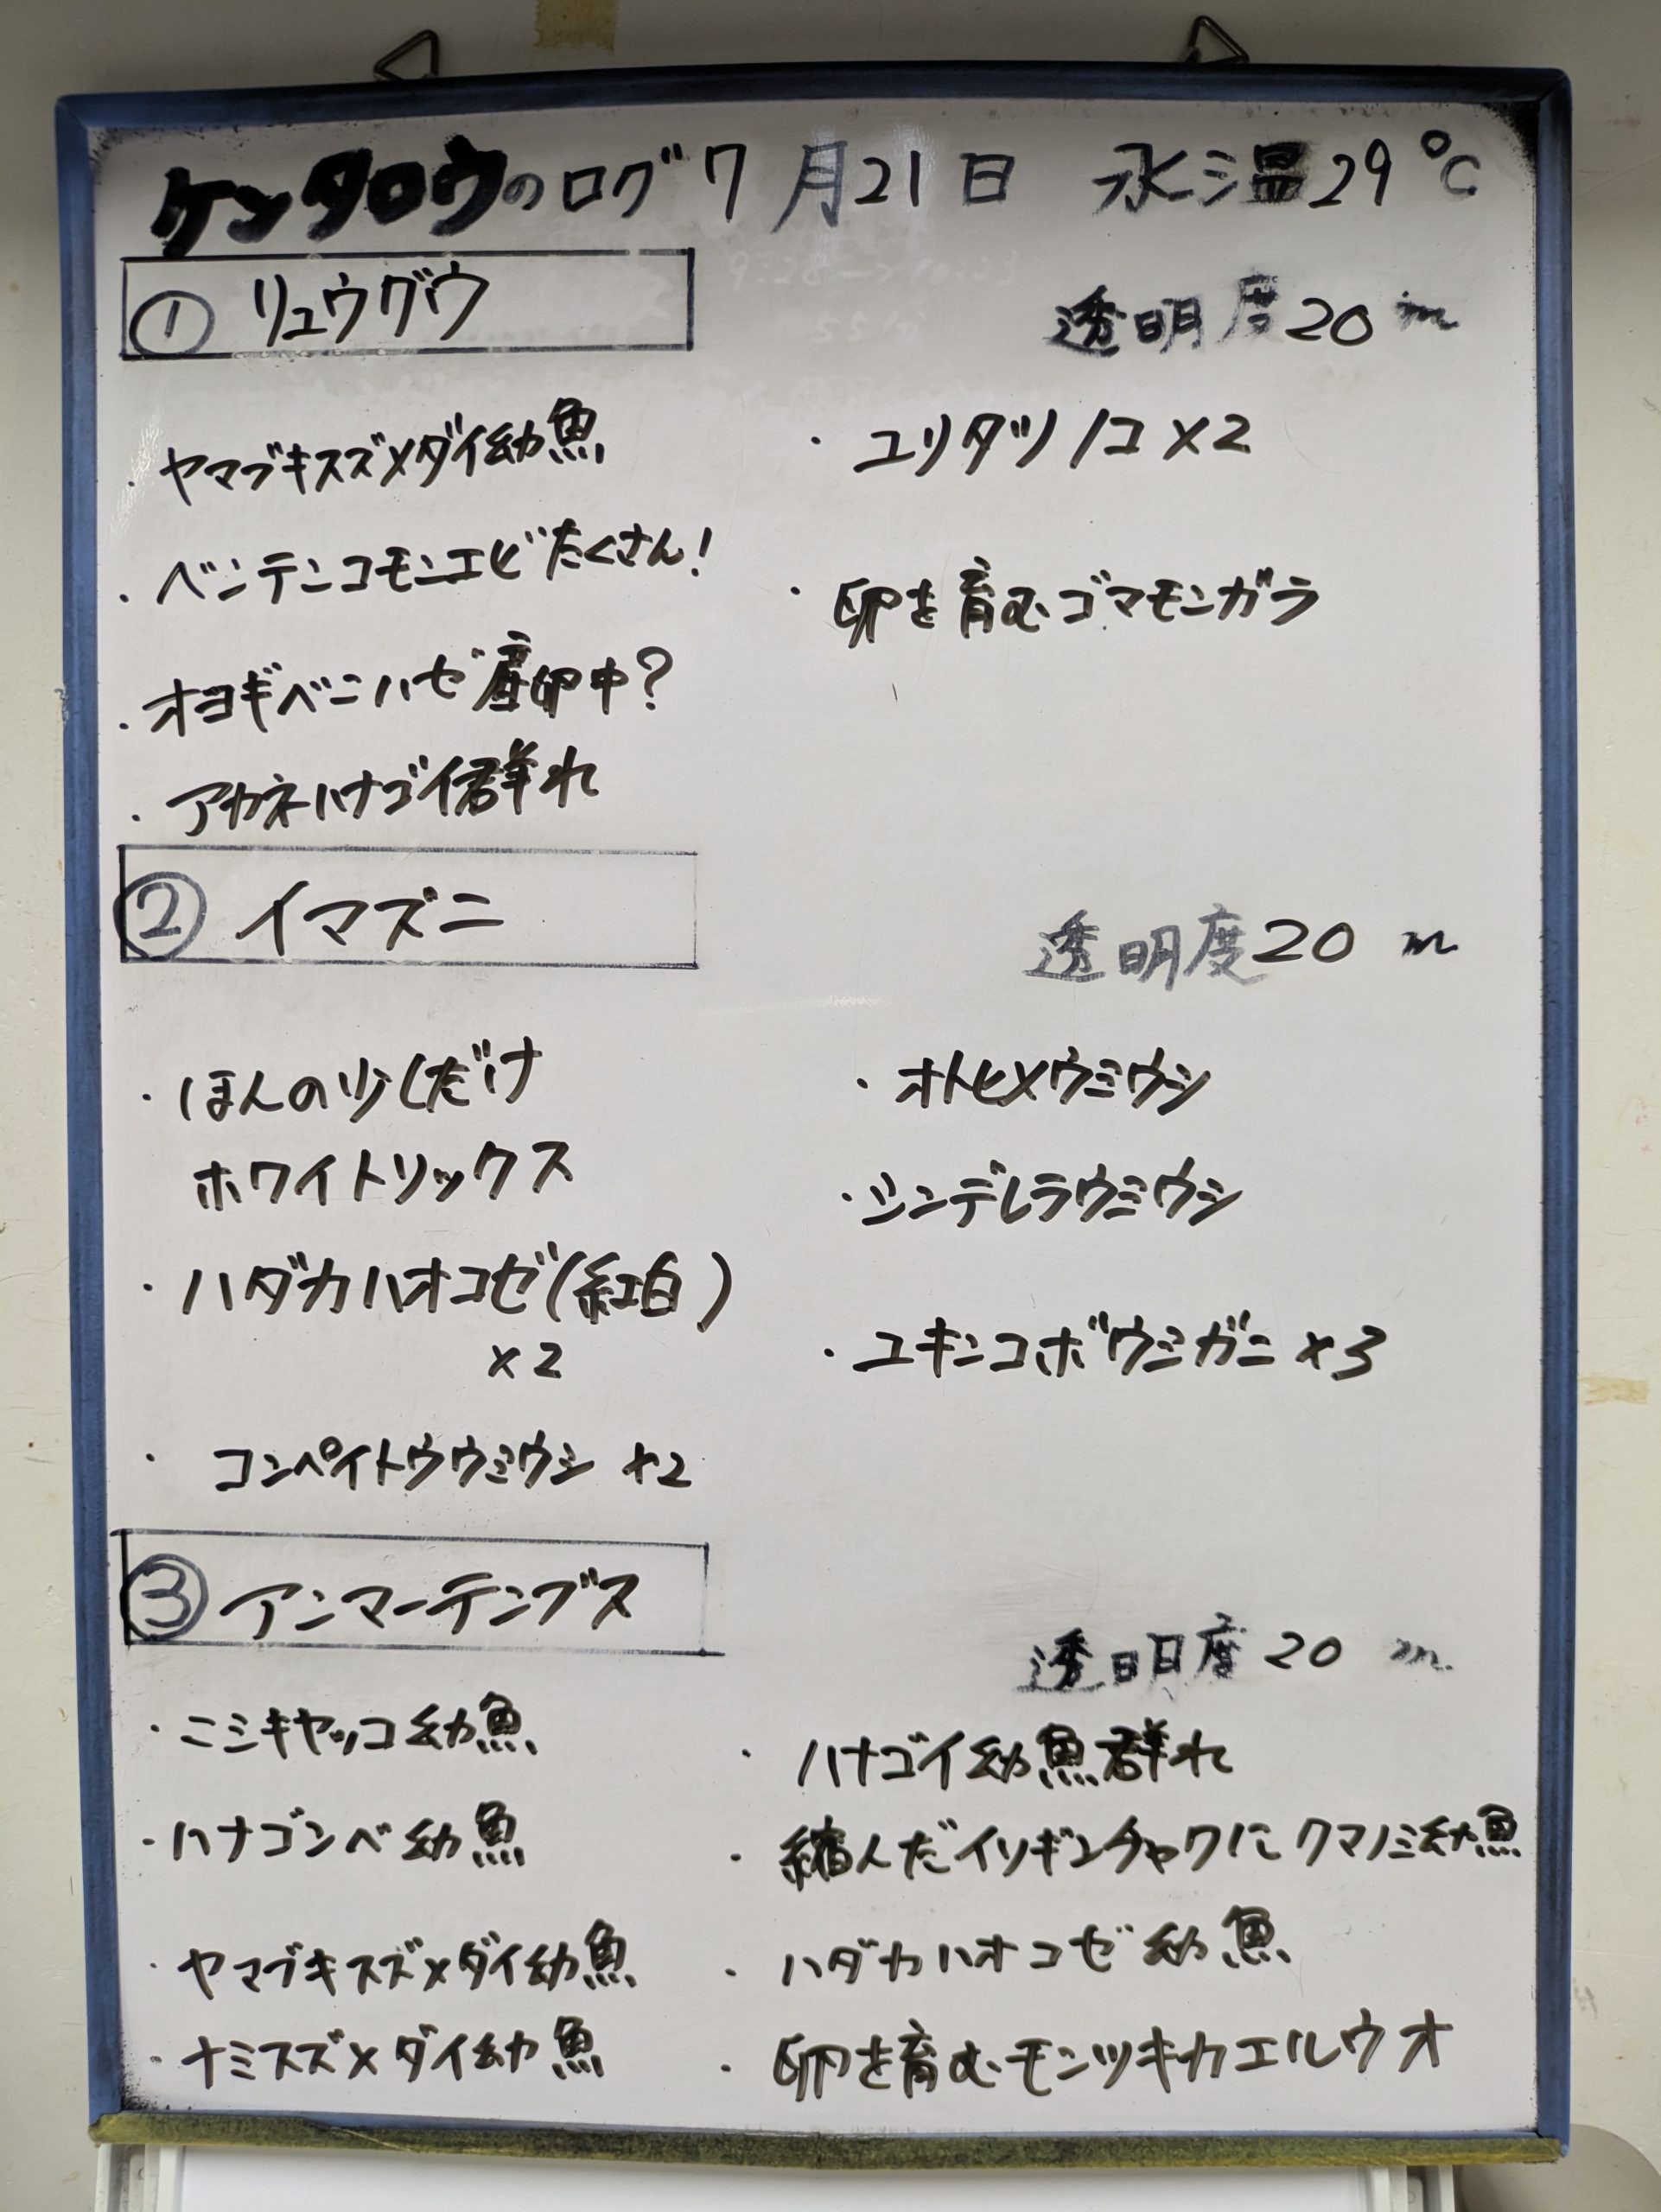 ケンタロウのログ 7月21日 水温29℃
① リュウグウ
透明度20m
・ヤマブキスズメダイ幼魚
・ベンテンコモンエビたくさん!
・オヨギベニハゼ産卵中?
・アカネハナゴイ群れ
・ユリタツノコ×2
・卵を育むゴマモンガラ
② イマズニ
透明度20m
・ほんの少しだけ
ホワイトソックス
・ハダカハオコゼ(紅白)
×2
・コンペイトウウミウシ ×2
・オトヒメウミウシ
・シンデレラウミウシ
・ユキンコボウシガニ ×3
③ アンマーテンブス
透明度20m
・ニシキヤッコ幼魚
・ハナゴンベ幼魚
・ヤマブキスズメダイ幼魚
・ナミスズメダイ幼魚
・ハナゴイ幼魚群れ
・縮んだイソギンチャクにクマノミ幼魚
・ハダカハオコゼ幼魚
・卵を育むモンツキカエルウオ